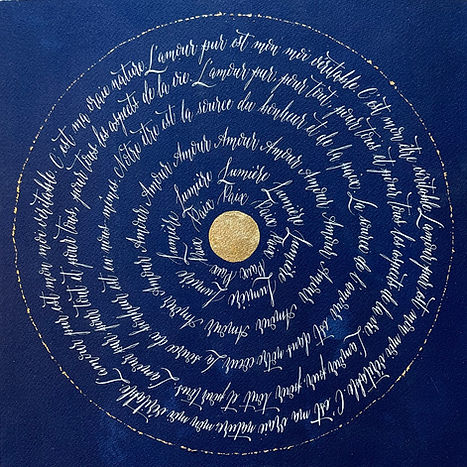 L'amour pur est mon moi véritable. C'est mon être véritable. L'amour pur est mon moi véritable. C'est ma vraie nature mon moi véritable. L'amour pur est mon moi véritable. C'est ma vraie nature.
L'amour pur pour tout, pour tous et pour tous les aspects de la vie. L'amour pur, pour tout et pour tous. L'amour pur pour tout et pour tous, pour tous les aspects de la vie.
Notre être est la source du bonheur et de la paix. La source de l'amour est dans notre cœur. La source du bonheur est en nous-mêmes.
Amour Amour Amour Amour Amour Amour Amour Amour Amour Amour Amour Amour Amour Amour
Lumière Lumière Lumière Lumière Lumière Lumière Lumière Lumière Lumière
Paix Paix Paix Paix Paix Paix Paix Paix